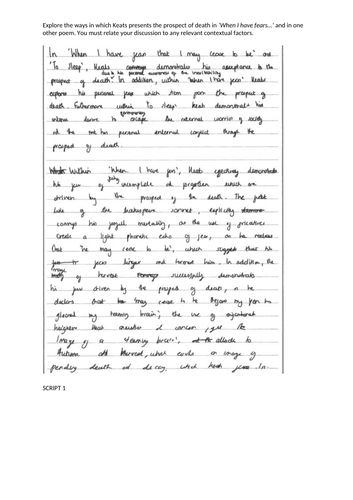 Explore the ways in which Keats presents the prospect of death in 'When I have fears...' and in one
other poem. Relate your discussion to any relevant contextual factors.
In 'When I have fears that I may cease to be' and
'To Sleep', Keats demonstrates his acceptance to the
prospect of death. In addition, within 'When I have fears' Keats
explores his personal fears which stem from the prospect of
death. Futhermore within 'To Sleep' Keats demonstrates his
intense desire to escape the external worries of society
and the his personal external conflict through the
prospect of death.
Within 'When I have fears', Keats effectively demonstrates
his fear of being incomplete and forgotten which are
driven by the prospect of the death. The first
line of the Shakespeare sonnet, explicitly
conveys his mortality, as the use of fricatives
create a light phonetic echo of fear, as he realises
that 'he may cease to be', which suggest that his
fears linger and him. In addition, the
image of harvest successfully demonstrates
his fear driven by the prospect of death, as he
declares that 'may cease to be before my pen has
gleaned my teeming brain'; the use of agricultural
heightens Keats of concern, yet the
image of a 'teeming brain', alludes to
Autumn and Harvest, which evokes an image of
pending death and decay, which Keats fears. In
SCRIPT 1